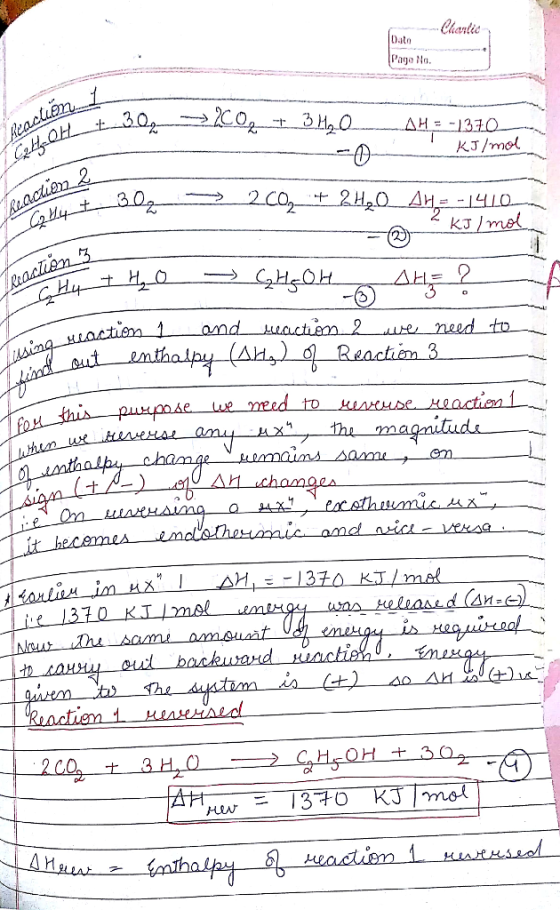 Charlie
Date
Page No.
Reaction 1
C₂H₅OH + 3O₂ → 2CO₂ + 3H₂O ΔH₁ = -1370 KJ/mol
-①
Reaction 2
C₂H₄ + 3O₂ → 2CO₂ + 2H₂O ΔH₂ = -1410 KJ/mol
-②
Reaction 3
C₂H₄ + H₂O → C₂H₅OH ΔH₃ = ?
-③
using reaction 1 and reaction 2 we need to
find out enthalpy (ΔH₃) of Reaction 3
For this purpose we need to reverse reaction 1
when we reverse any rxⁿ, the magnitude
of enthalpy change remains same, on
sign (+/-) of ΔH changes
i.e On reversing a rxⁿ, exothermic rxⁿ,
it becomes endothermic and vice-versa.
* Earlier in rxⁿ 1 ΔH₁ = -1370 KJ/mol
i.e 1370 KJ/mol energy was released (ΔH=(-)
Now the same amount of energy is required
to carry out backward reaction. Energy
given to the system is (+) so ΔH is (+)
Reaction 1 reversed
2CO₂ + 3H₂O → C₂H₅OH + 3O₂ -④
ΔHrev = 1370 KJ/mol
ΔHrev = Enthalpy of reaction 1 reversed